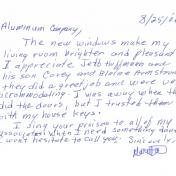 8/25/
Aluminum Company,
The new windows make my
living room brighter and pleasant
I appreciate Jeff Hoffmann and
his son Corey and Blaine Armstrong
they did a great job and were very
accommodating. I was away when they
did the doors, but I trusted them
with my house keys.
I sing your praises to all of my
associates! When I need something done
I won't hesitate to call you. Sincerely,